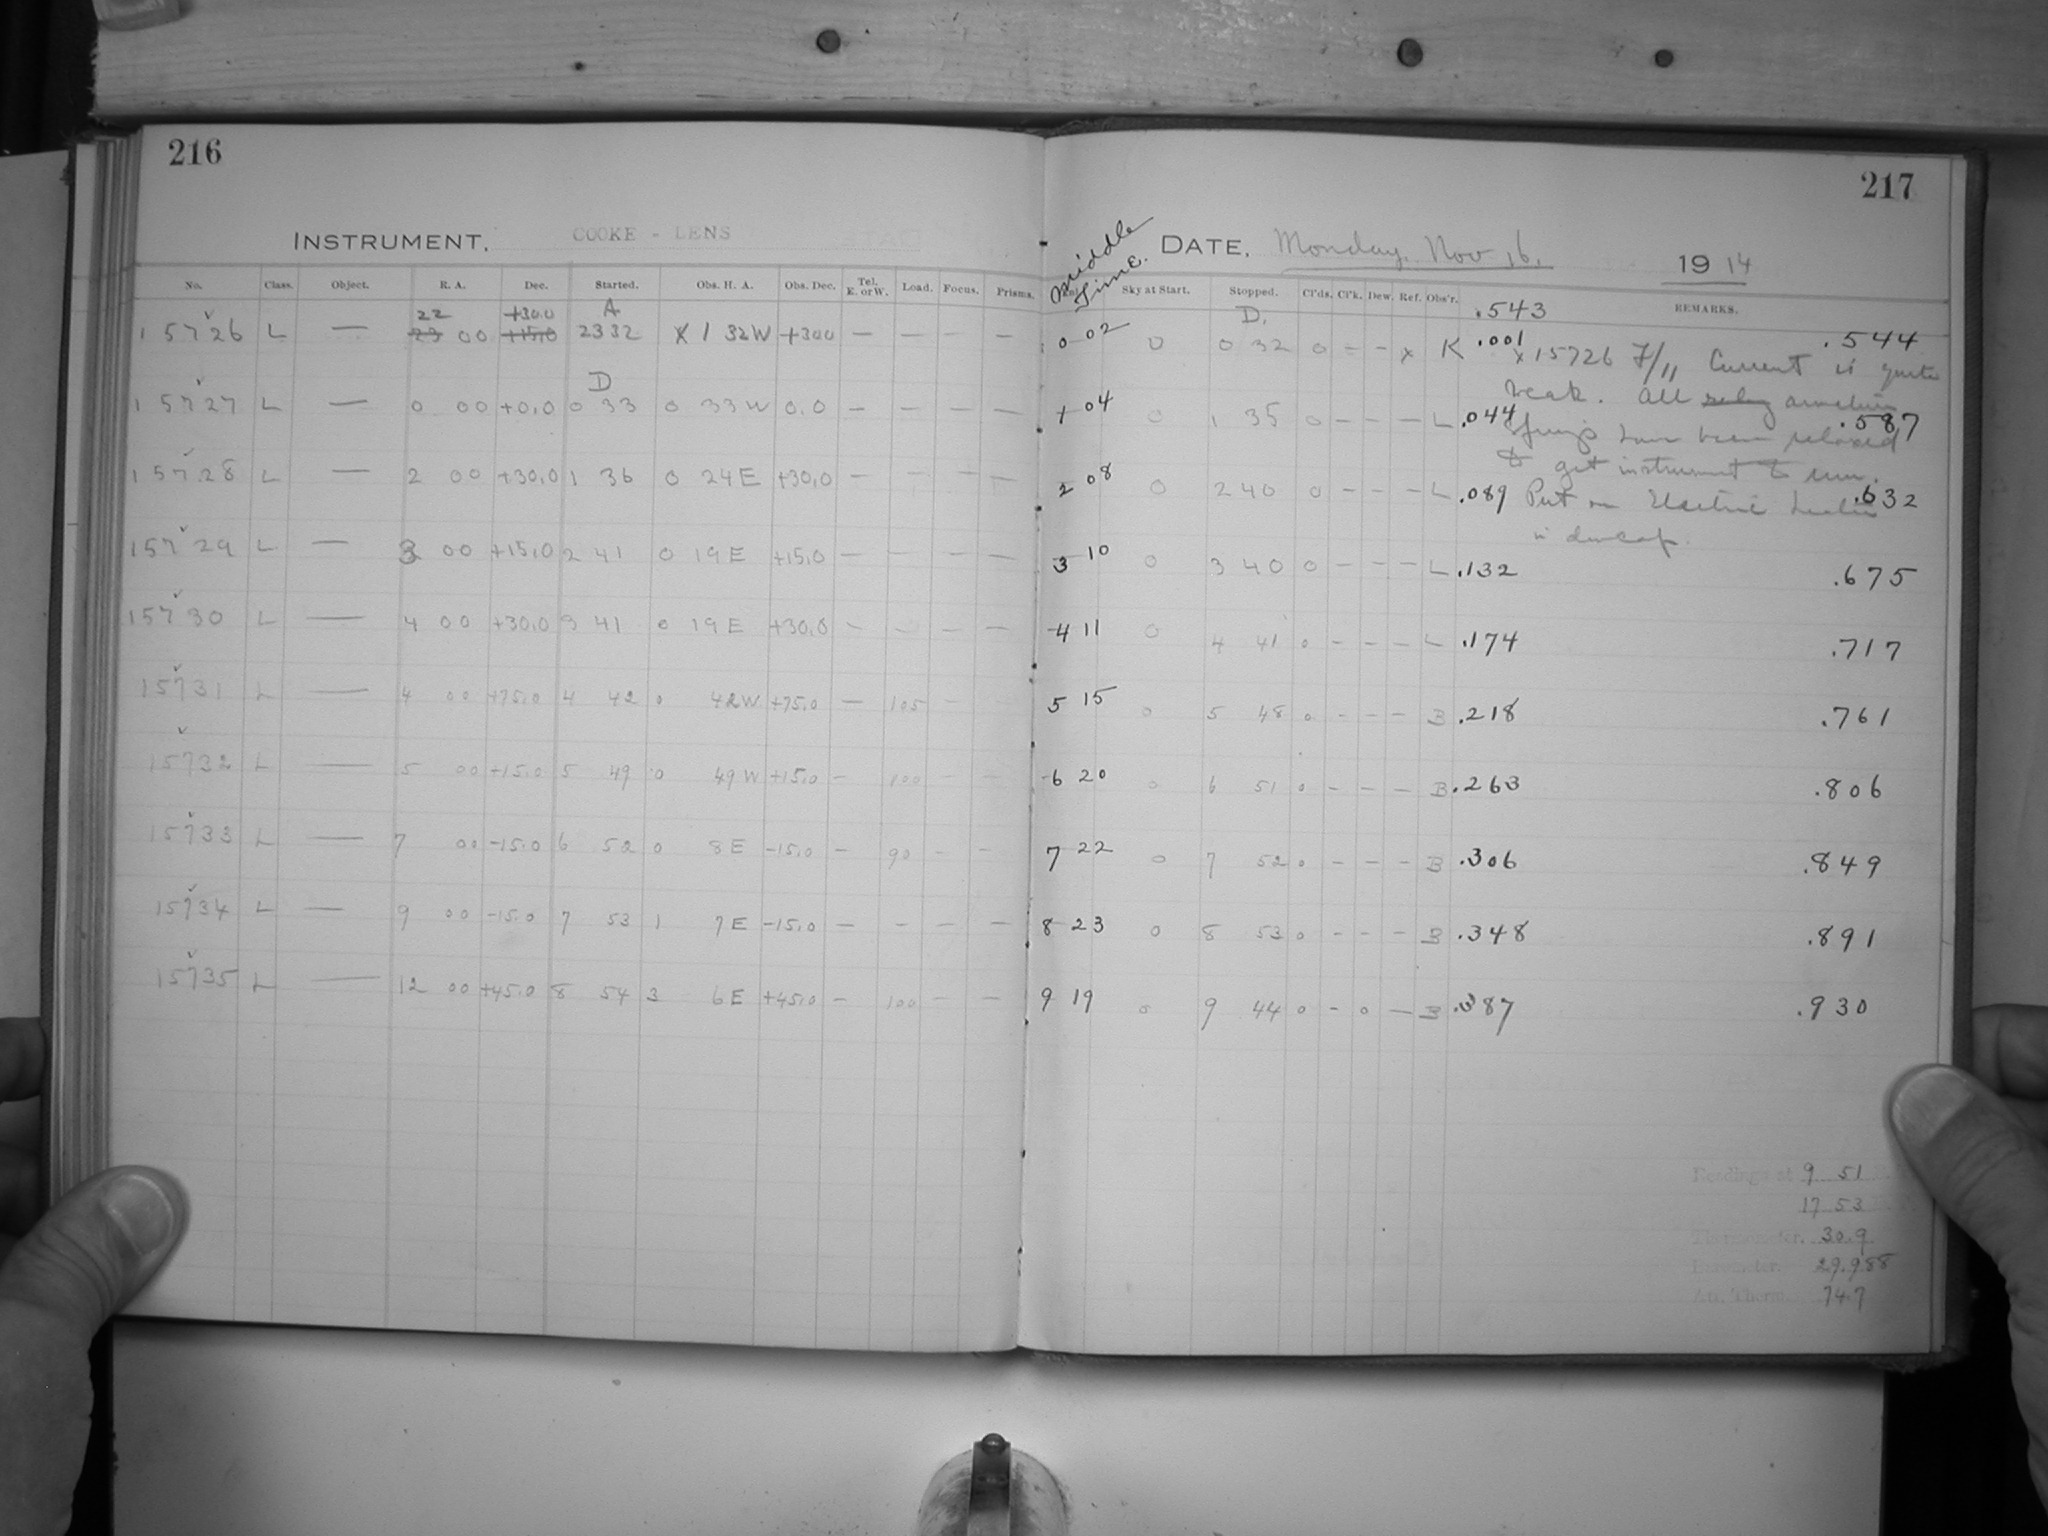 216
217
INSTRUMENT. COOKE - LENS
DATE. Monday, Nov 16. 1914
Middle Time.
No. Class. Object. R. A. Dec. Started. Obs. H. A. Obs. Dec. Tel. E. or W. Load. Focus. Prisms.
Sky at Start. Stopped. Cl'ds. Cl'k. Dew. Ref. Obs'r. REMARKS.
22 +30.0 A D. .543
15726 L — 23 00 +15.0 23 32 x 1 32 W +30.0 — — — — 0 02 0 0 32 0 - - x K .001 .544
x 15726 F/11 Current is quite
weak. All armature
D
15727 L — 0 00 +0.0 0 33 0 33 W 0.0 — — — — 1 04 0 1 35 0 - - - L .044 .587
have been relaxed
to get instrument to run.
15728 L — 2 00 +30.0 1 36 0 24 E +30.0 — — — — 2 08 0 2 40 0 - - - L .089 .632
Put on Electric
in dewcap.
15729 L — 3 00 +15.0 2 41 0 19 E +15.0 — — — — 3 10 0 3 40 0 - - - L .132 .675
15730 L — 4 00 +30.0 3 41 0 19 E +30.0 — — — — 4 11 0 4 41 0 - - - L .174 .717
15731 L — 4 00 +75.0 4 42 0 42 W +75.0 — 105 - - 5 15 0 5 48 0 - - - B .218 .761
15732 L — 5 00 +15.0 5 49 0 49 W +15.0 — 100 - - 6 20 0 6 51 0 - - - B .263 .806
15733 L — 7 00 -15.0 6 52 0 8 E -15.0 — 90 - - 7 22 0 7 52 0 - - - B .306 .849
15734 L — 9 00 -15.0 7 53 1 7 E -15.0 — - - — 8 23 0 8 53 0 - - - B .348 .891
15735 L — 12 00 +45.0 8 54 3 6 E +45.0 — 100 - — 9 19 0 9 44 0 - 0 - B .387 .930
Readings at 9 51
17 53
Thermometer. 30.9
Barometer. 29.988
Att. Therm. 74.7